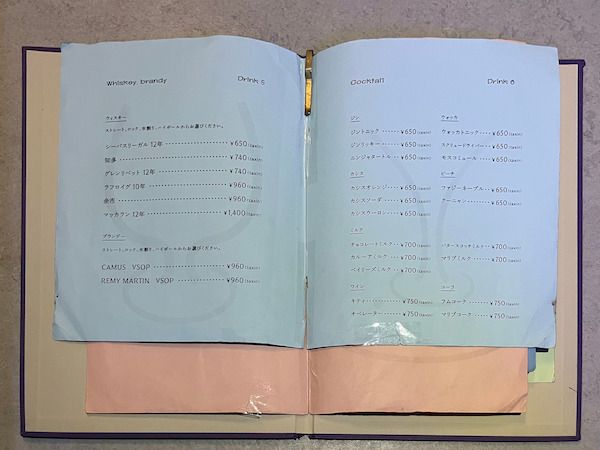 Whiskey, brandy
Drink 5
ウィスキー
ストレート、ロック、水割り、ハイボールからお選びください。
シーバスリーガル 12年 ¥650
知多 ¥740
グレンリベット 12年 ¥740
ラフロイグ 10年 ¥960
余市 ¥960
マッカラン 12年 ¥1,400
ブランデー
ストレート、ロック、水割り、ハイボールからお選びください。
CAMUS VSOP ¥960
REMY MARTIN VSOP ¥960
Cocktail
Drink 6
ジン
ジントニック ¥650
ジンリッキー ¥650
ジンジャタートル ¥650
カシス
カシスオレンジ ¥650
カシスソーダ ¥650
カシスウーロン ¥650
ミルク
チョコレートミルク ¥700
カルーアミルク ¥700
ベイリーズミルク ¥700
ワイン
キティ ¥750
オペレーター ¥750
ウォッカ
ウォッカトニック ¥650
スクリュードライバー ¥650
モスコミュール ¥650
ピーチ
ファジーネーブル ¥650
クーニャン ¥650
バタースコッチミルク ¥700
マリブミルク ¥700
コーラ
ラムコーク ¥750
マリブコーク ¥750